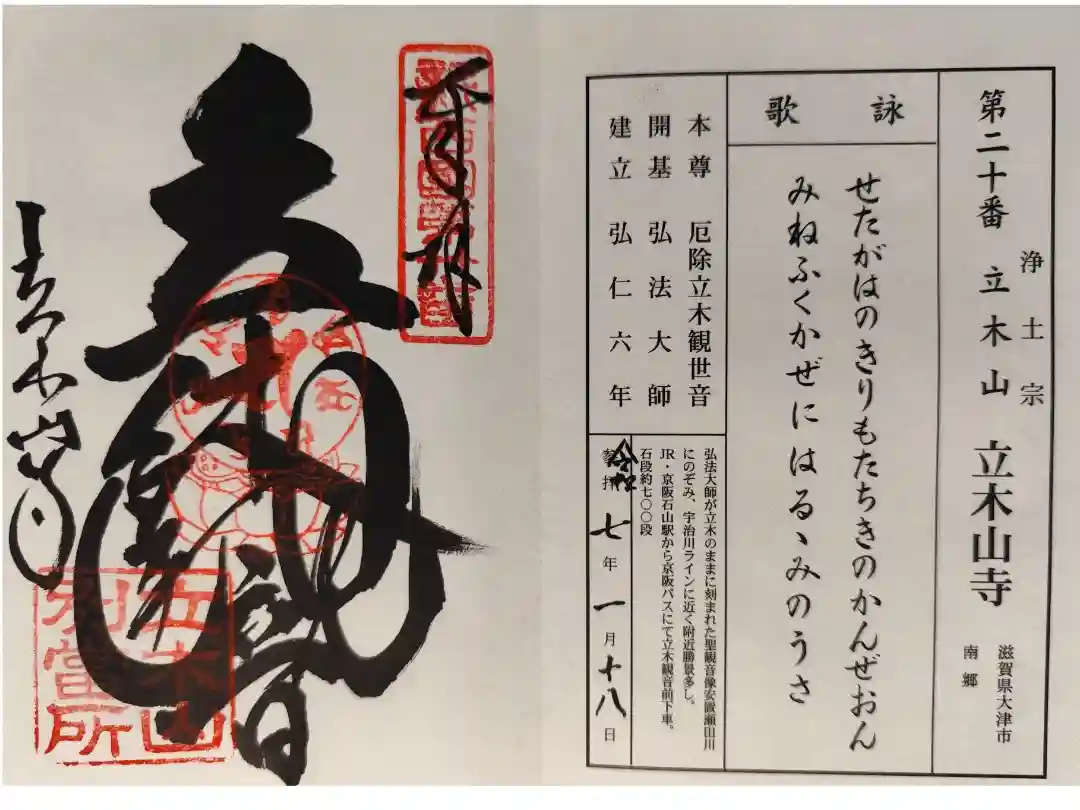 第二十番 立木山 立木山寺
浄土宗
滋賀県大津市
南郷
詠歌
せたがはのきりもたちきのかんぜおん
みねふくかぜにはるゝみのうさ
本尊 厄除立木観世音
開基 弘法大師
建立 弘仁六年
弘法大師が立木のままに刻まれた聖観音像安置瀬田川
にのぞみ、宇治川ラインに近く附近勝景多し。
JR・京阪石山駅から京阪バスにて立木観音前下車。
石段約七〇〇段
参拝 令和七年一月十八日
奉拝
立木観世音
立木山寺
立木山
別當所